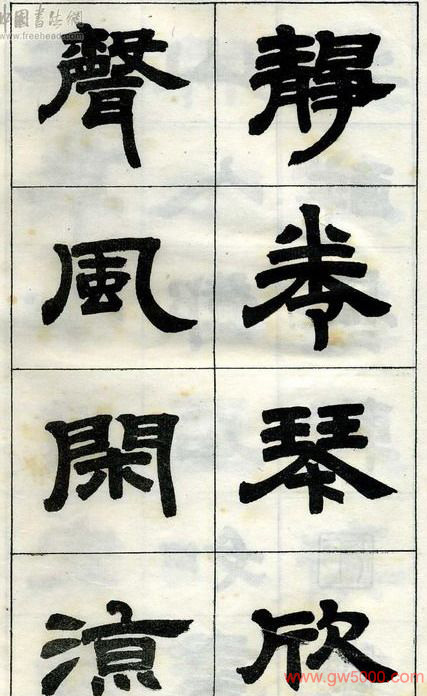 中國書法網
www.freehead.com
靜卷琴欣
聲風閑涼
www.gw5000.com